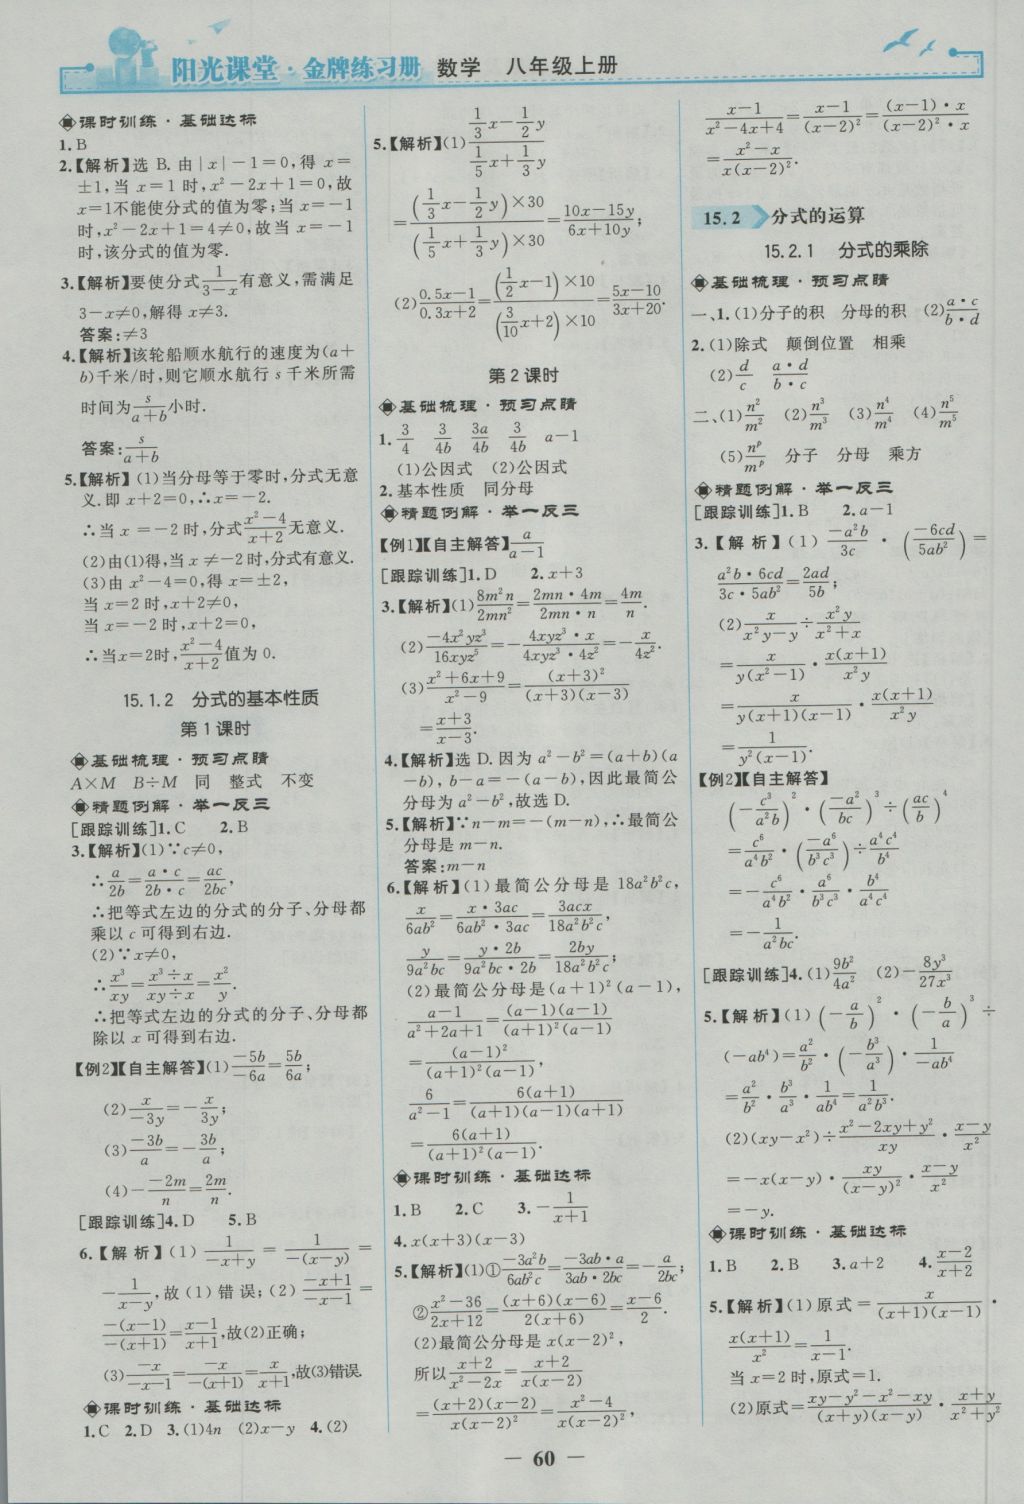 阳光课堂·金牌练习册 数学 八年级上册
◈课时训练·基础达标
1.B
2.【解析】选 B.由|x|-1=0,得 x=
±1,当 x=1 时,x²-2x+1=0,故
x=1不能使分式的值为零;当 x=-1
时,x²-2x+1=4≠0,故当 x=-1
时,该分式的值为零.
3.【解析】要使分式1/(3-x)有意义,需满足
3-x≠0,解得 x≠3.
答案:≠3
4.【解析】该轮船顺水航行的速度为(a+
b)千米/时,则它顺水航行 s 千米所需
时间为s/(a+b)小时.
答案:s/(a+b)
5.【解析】(1)当分母等于零时,分式无意
义.即 x+2=0,∴x=-2.
∴当 x=-2 时,分式(x²-4)/(x+2)无意义.
(2)由(1)得,当 x≠-2时,分式有意义.
(3)由 x²-4=0,得 x=±2,
当 x=2 时,x+2≠0,
当 x=-2 时,x+2=0,
∴当x=2时,(x²-4)/(x+2)值为 0.
15.1.2 分式的基本性质
第 1 课时
◈基础梳理·预习点睛
A×M B÷M 同 整式 不变
◈精题例解·举一反三
[跟踪训练]1.C 2.B
3.【解析】(1)∵c≠0,
∴a/2b=(a·c)/(2b·c)=ac/2bc,
∴把等式左边的分式的分子、分母都
乘以 c 可得到右边.
(2)∵x≠0,
∴x³/xy=(x³÷x)/(xy÷x)=x²/y.
∴把等式左边的分式的分子、分母都
除以 x 可得到右边.
【例2】【自主解答】(1)(-5b)/(-6a)=5b/6a;
(2)x/(-3y)=-x/3y;
(3)(-3b)/a=-3b/a;
(4)-(-2m)/n=2m/n.
[跟踪训练]4.D 5.B
6.【解析】(1)1/(-x+y)=1/(-(x-y))=
-1/(x-y),故(1)错误;(2)(-x+1)/(-x-1)=
(-(x-1))/(-(x+1))=(x-1)/(x+1),故(2)正确;
(3)(-x)/(-x-1)=(-x)/(-(x+1))=x/(x+1),故(3)错误.
◈课时训练·基础达标
1.C 2.D 3.(1)4n (2)x-y 4.(2)
5.【解析】(1)(1/3 x-1/2 y)/(1/5 x+1/3 y)
=((1/3 x-1/2 y)×30)/((1/5 x+1/3 y)×30)=(10x-15y)/(6x+10y);
(2)(0.5x-1)/(0.3x+2)=((1/2 x-1)×10)/((3/10 x+2)×10)=(5x-10)/(3x+20).
第 2 课时
◈基础梳理·预习点睛
1.3/4 3/4b 3a/4b 3/4b a-1
(1)公因式 (2)公因式
2.基本性质 同分母
◈精题例解·举一反三
【例1】【自主解答】a/(a-1)
[跟踪训练]1.D 2.x+3
3.【解析】(1)8m²n/2mn²=(2mn·4m)/(2mn·n)=4m/n.
(2)(-4x²yz³)/16xyz⁵=-(4xyz³·x)/(4xyz³·4z²)=-x/4z².
(3)(x²+6x+9)/(x²-9)=(x+3)²/((x+3)(x-3))
=(x+3)/(x-3).
4.【解析】选 D.因为 a²-b²=(a+b)(a
-b),b-a=-(a-b),因此最简公
分母为 a²-b²,故选 D.
5.【解析】∵n-m=-(m-n),∴最简公
分母是 m-n.
答案:m-n
6.【解析】(1)最简公分母是 18a²b²c,
x/6ab²=(x·3ac)/(6ab²·3ac)=3acx/18a²b²c,
y/9a²bc=(y·2b)/(9a²bc·2b)=2by/18a²b²c;
(2)最简公分母是(a+1)²(a-1),
(a-1)/(a²+2a+1)=((a-1)(a-1))/((a+1)²(a-1))
=(a-1)²/((a+1)²(a-1)),
6/(a²-1)=6(a+1)/((a+1)(a-1)(a+1))
=6(a+1)/((a+1)²(a-1)).
◈课时训练·基础达标
1.B 2.C 3.-1/(x+1)
4.x(x+3)(x-3)
5.【解析】(1)①(-3a²b)/6ab²c=(-3ab·a)/(3ab·2bc)=-a/2bc;
②(x²-36)/(2x+12)=((x+6)(x-6))/(2(x+6))=(x-6)/2.
(2)最简公分母是 x(x-2)²,
所以(x+2)/(x²-2x)=(x+2)/(x(x-2))
=((x+2)(x-2))/(x(x-2)²)=(x²-4)/(x(x-2)²),
(x-1)/(x²-4x+4)=(x-1)/(x-2)²=((x-1)·x)/((x-2)²·x)
=(x²-x)/(x(x-2)²).
15.2 分式的运算
15.2.1 分式的乘除
◈基础梳理·预习点睛
一、1.(1)分子的积 分母的积 (2)(a·c)/(b·d)
2.(1)除式 颠倒位置 相乘
(2)d/c (a·d)/(b·c)
二、(1)n²/m² (2)n³/m³ (3)n⁴/m⁴ (4)n⁵/m⁵
(5)nᵖ/mᵖ 分子 分母 乘方
◈精题例解·举一反三
[跟踪训练]1.B 2.a-1
3.【解析】(1)(-a²b)/3c·((-6cd)/5ab²)=
(a²b·6cd)/(3c·5ab²)=2ad/5b;
(2)x/(x²y-y)÷x²y/(x²+x)
=x/(y(x²-1))·x(x+1)/x²y
=x/(y(x+1)(x-1))·x(x+1)/x²y
=1/(y²(x-1)).
【例2】【自主解答】
(-c³/a²b)²·((-a²)/bc)³÷(ac/b)⁴
=c⁶/a⁴b²·((-a⁶)/b³c³)÷a⁴c⁴/b⁴
=-c⁶/a⁴b²·a⁶/b³c³·b⁴/a⁴c⁴
=-1/a²bc.
[跟踪训练]4.(1)9b²/4a² (2)-8y³/27x³
5.【解析】(1)(-a/b)²·(-b/a)³÷
(-ab⁴)=a²/b²·(-b³/a³)·1/(-ab⁴)
=a²/b²·b³/a³·1/ab⁴=1/a²b³.
(2)(xy-x²)÷(x²-2xy+y²)/xy·(x-y)/x²
=-x(x-y)·xy/(x-y)²·(x-y)/x²
=-y.
◈课时训练·基础达标
1.B 2.B 3.a+2 4.(x-2)/(x+2)
5.【解析】(1)原式=x/((x+1)(x-1))·
x(x+1)/x²=1/(x-1).
当 x=2 时,原式=1.
(2)原式=(xy-y²-x²-xy)/((x+y)(x-y))·(x+y)/(x²+y²)
— 60 —